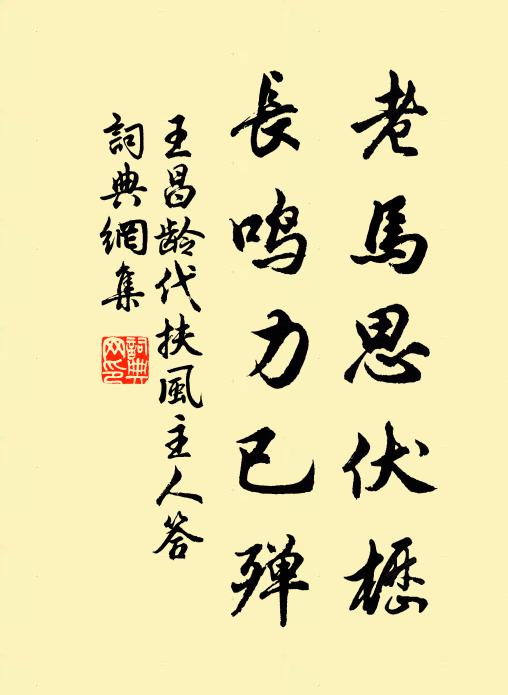 老馬思伏櫪
長鳴力已殫
王昌龄代扶風主人答
詞典網集
詞典網印